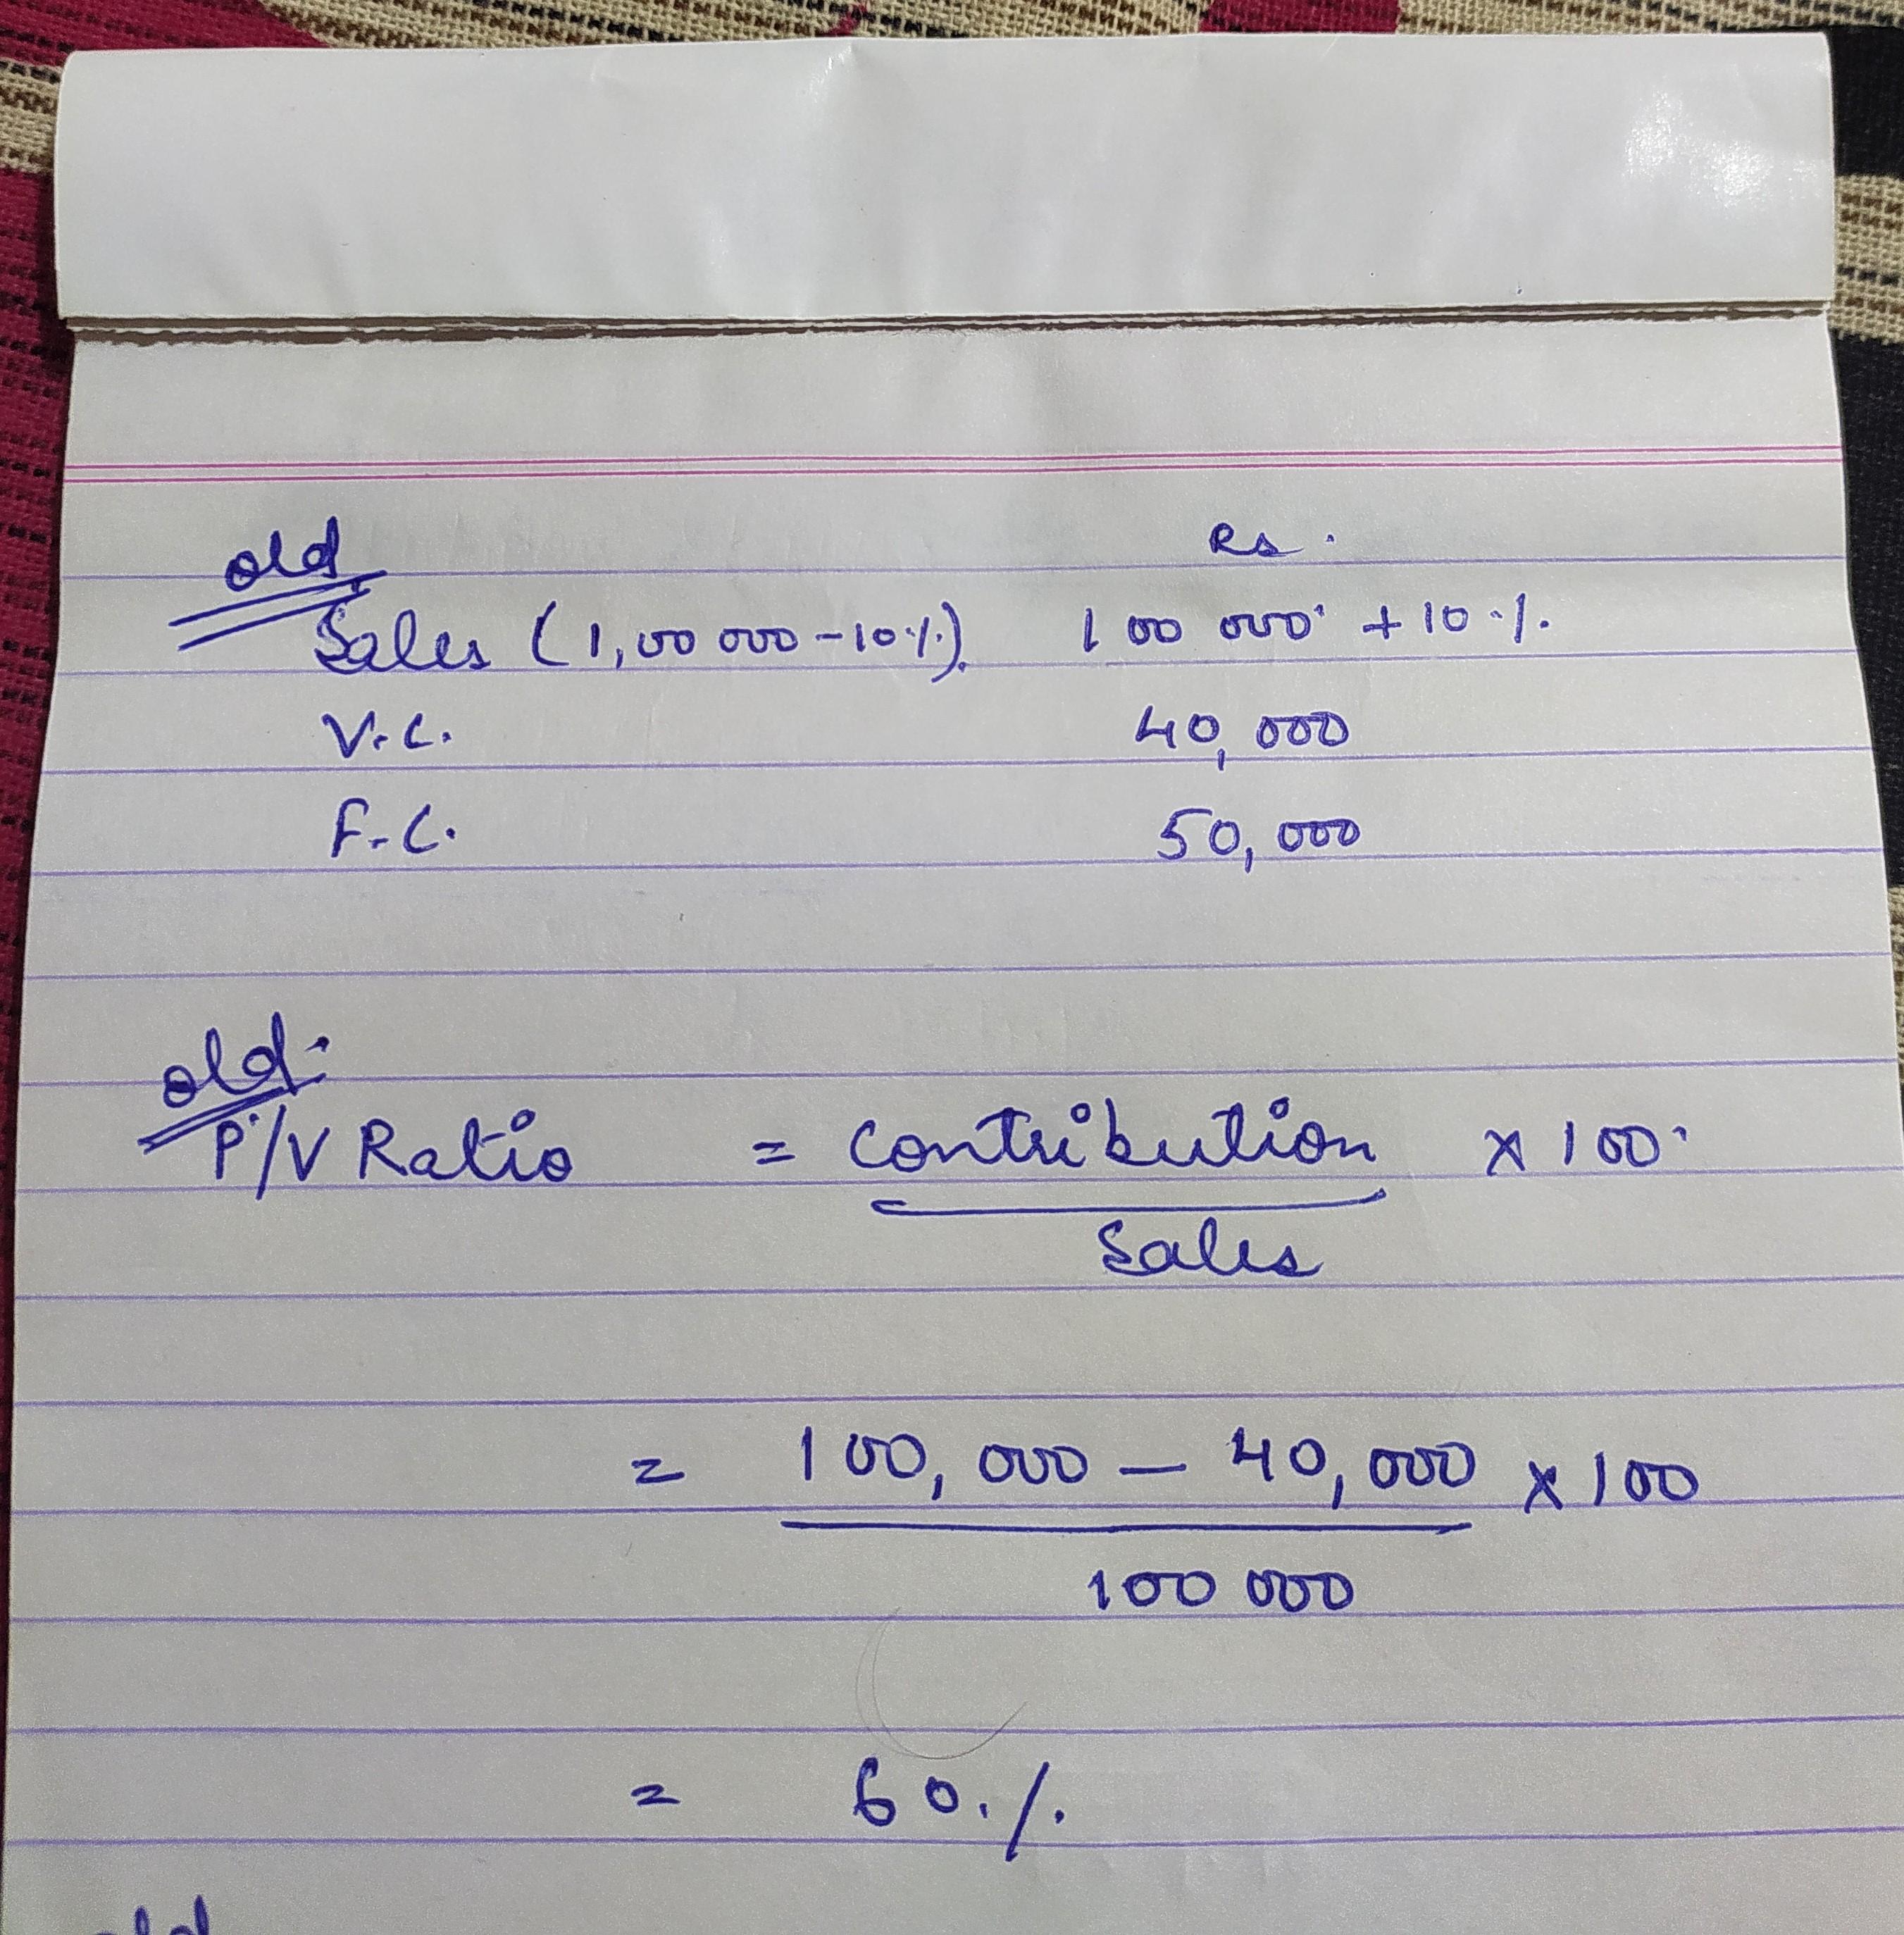 old
Rs.
Sales (1,00 000 - 10%). 100 000 + 10%.
V.C. 40,000
F.C. 50,000
old.
P/V Ratio = Contribution × 100
Sales
= 100,000 - 40,000 × 100
100 000
= 60%.
old